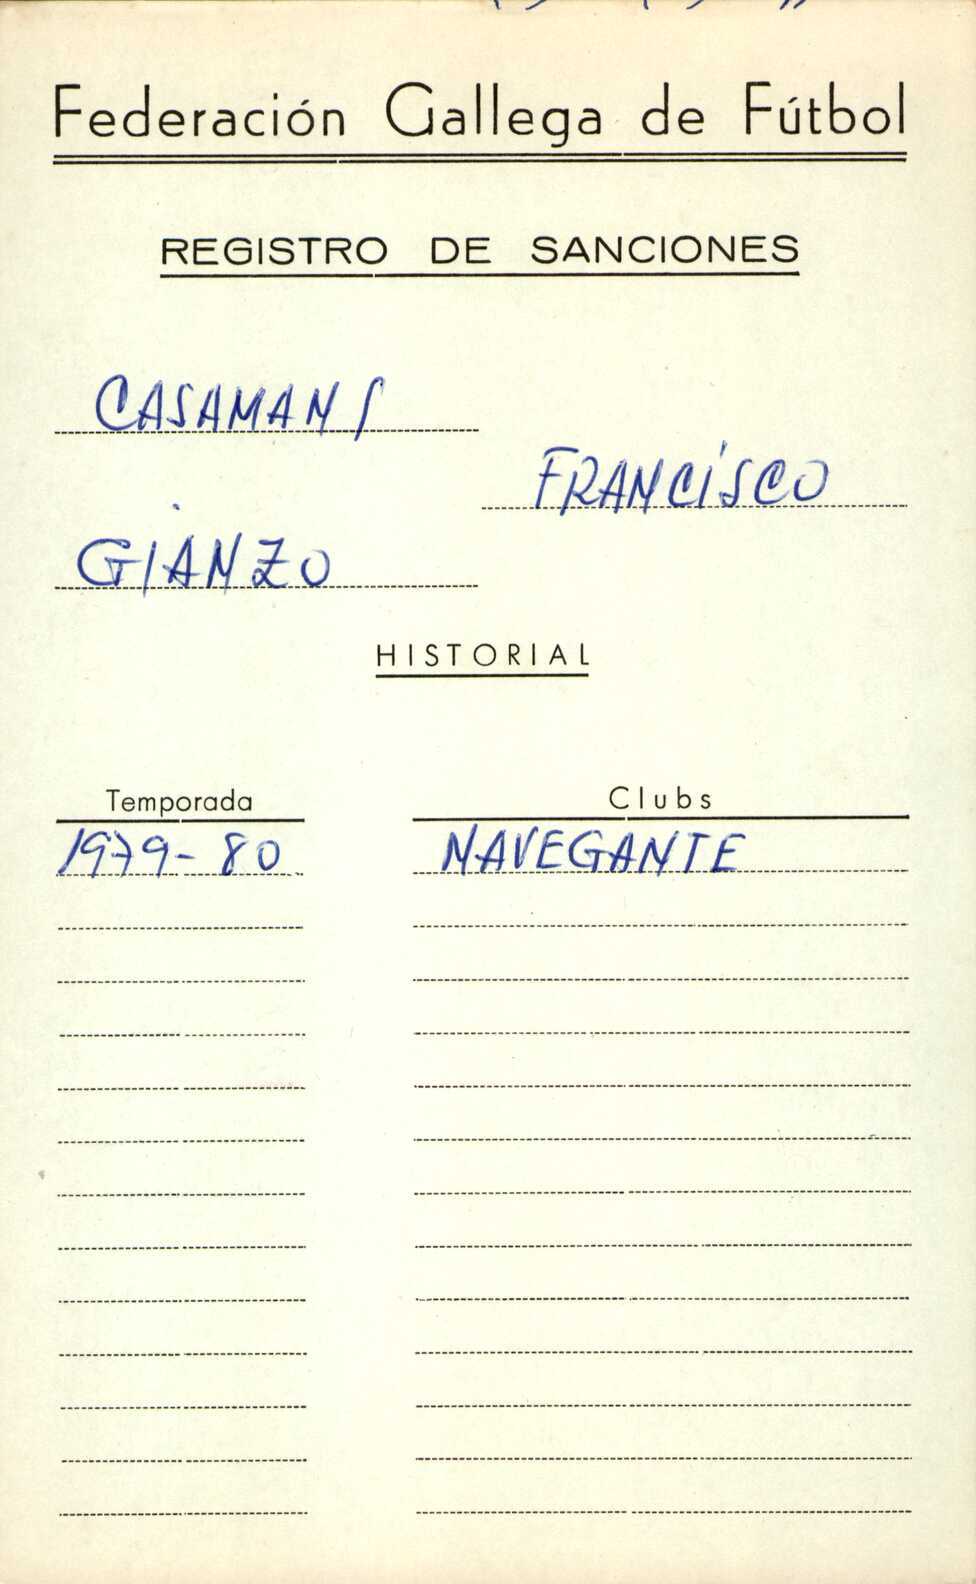 Federación Gallega de Fútbol
REGISTRO DE SANCIONES
CASAMANS
FRANCISCO
GIANZO
HISTORIAL
Temporada Clubs
1979-80 NAVEGANTE